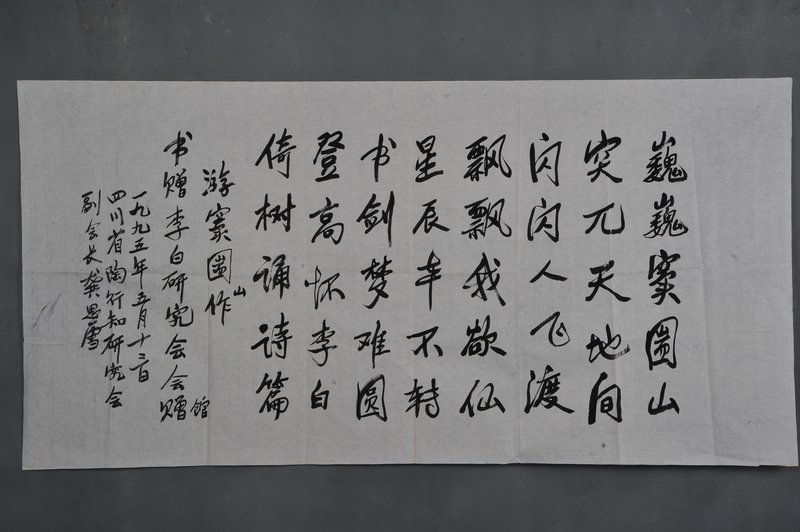 巍巍窦圌山
突兀天地间
闪闪人飞渡
飘飘我欲仙
星辰车不转
书剑梦难圆
登高怀李白
倚树诵诗篇
游窦圌山作
书赠李白研究会会赠馆
一九九五年五月十二日
四川省陶行知研究会
副会长龚思雪